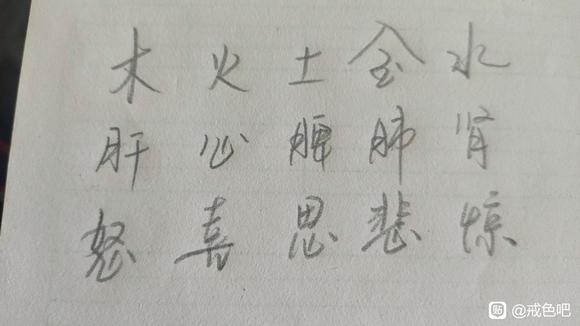 木 火 土 金 水
肝 心 脾 肺 肾
怒 喜 思 悲 惊
贴 @戒色吧